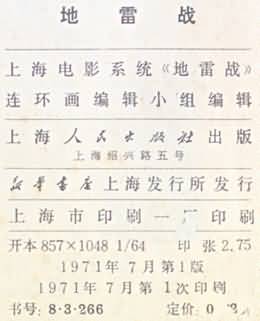 地雷战
上海电影系统《地雷战》
连环画编辑小组编辑
上海人民出版社出版
上海绍兴路五号
新华书店上海发行所发行
上海市印刷一厂印刷
开本 857×1048 1/64 印张 2.75
1971年7月第1版
1971年7月第1次印刷
书号: 8·3·266 定价: 0